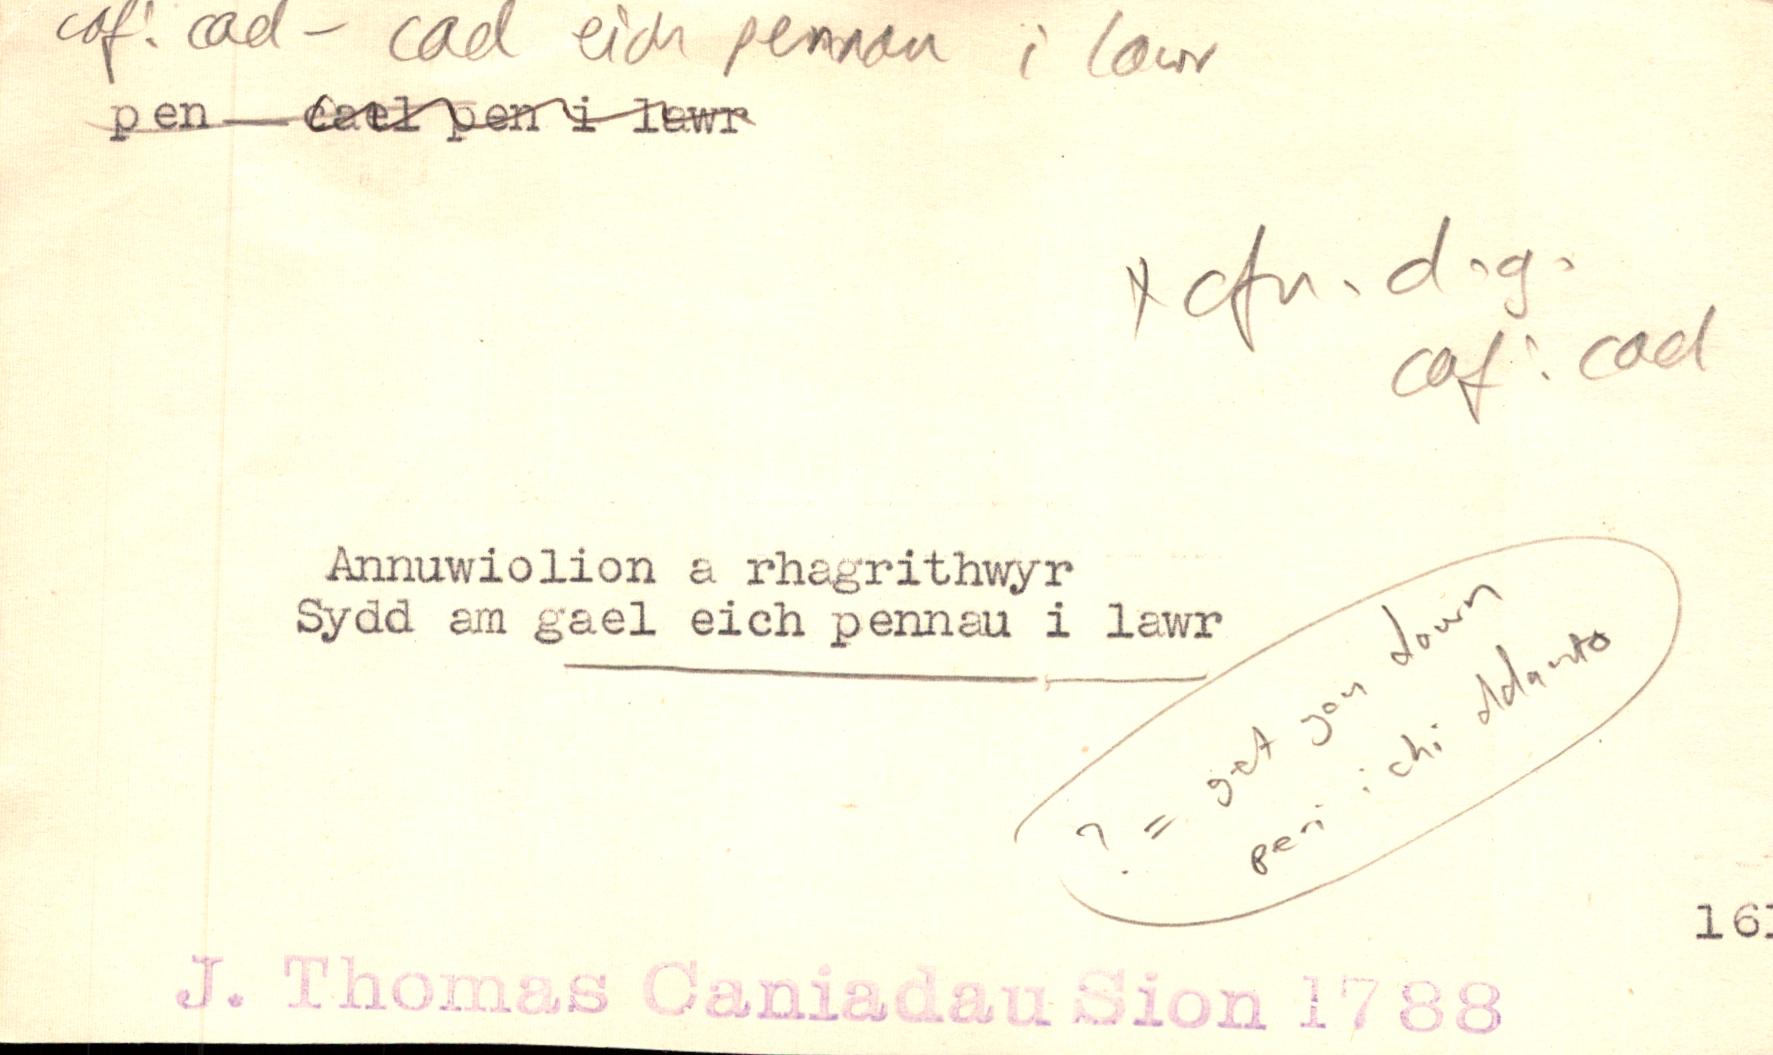 caf: cad - cad eich pennau i lawr
pen — cael pen i lawr
x cfn. d.g.
caf: cad
Annuwiolion a rhagrithwyr
Sydd am gael eich pennau i lawr
? = get you down
peri i chi ddawnsio
161
J. Thomas Caniadau Sion 1788